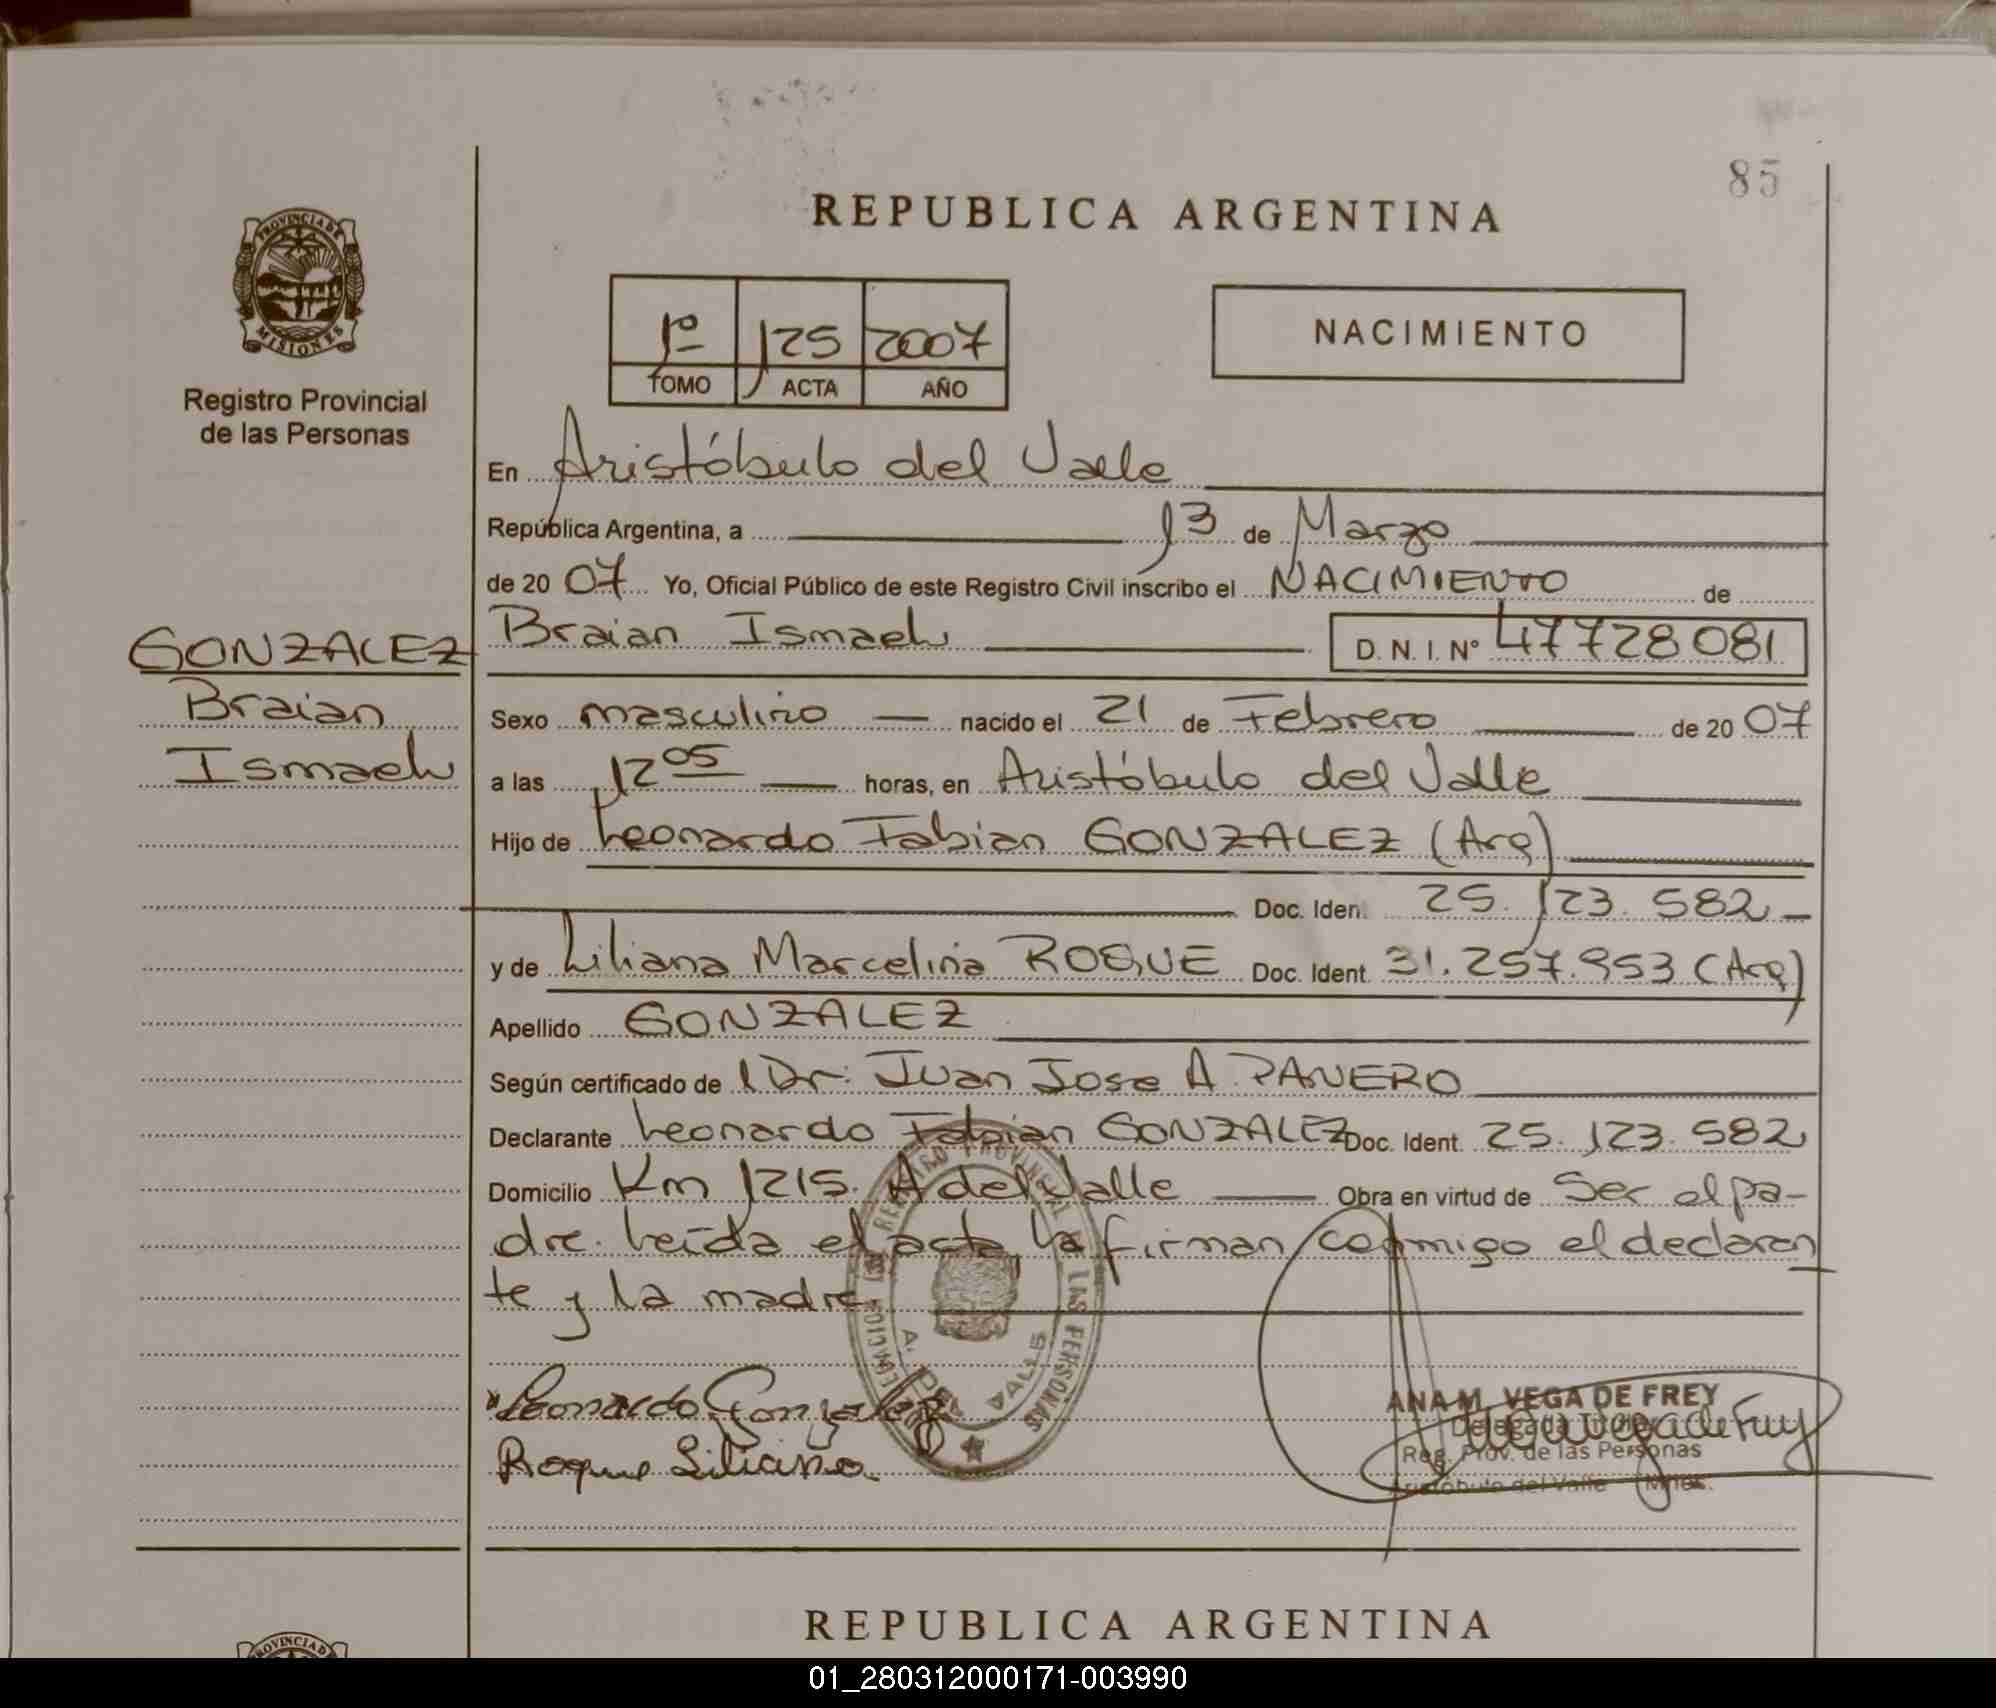 85
REPUBLICA ARGENTINA
PROVINCIA DE
MISIONES
Registro Provincial
de las Personas
1º 125 2007
TOMO ACTA AÑO
NACIMIENTO
En Aristóbulo del Valle
República Argentina, a 13 de Marzo
de 20 07 Yo, Oficial Público de este Registro Civil inscribo el NACIMIENTO de
GONZALEZ
Braian
Ismael
Braian Ismael D. N. I. Nº 47728081
Sexo masculino nacido el 21 de Febrero de 20 07
a las 12 05 horas, en Aristóbulo del Valle
Hijo de Leonardo Fabian GONZALEZ (Arg)
Doc. Iden. 25.123.582
y de Liliana Marcelina ROQUE Doc. Ident. 31.257.953 (Arg)
Apellido GONZALEZ
Según certificado de l Dr. Juan Jose A. PANERO
Declarante Leonardo Fabian GONZALEZ Doc. Ident. 25.123.582
Domicilio Km 1215. A del Valle Obra en virtud de Ser el pa-
dre. Leída el acta, la firman conmigo el declaran
te y la madre
REGISTRO PROVINCIAL DE LAS PERSONAS
A. DEL VALLE
Leonardo Gonzalez
Roque Liliana
ANA M. VEGA DE FREY
Delegada
Reg. Prov. de las Personas
Aristóbulo del Valle Mnes.
REPUBLICA ARGENTINA
PROVINCIA DE
01_280312000171-003990